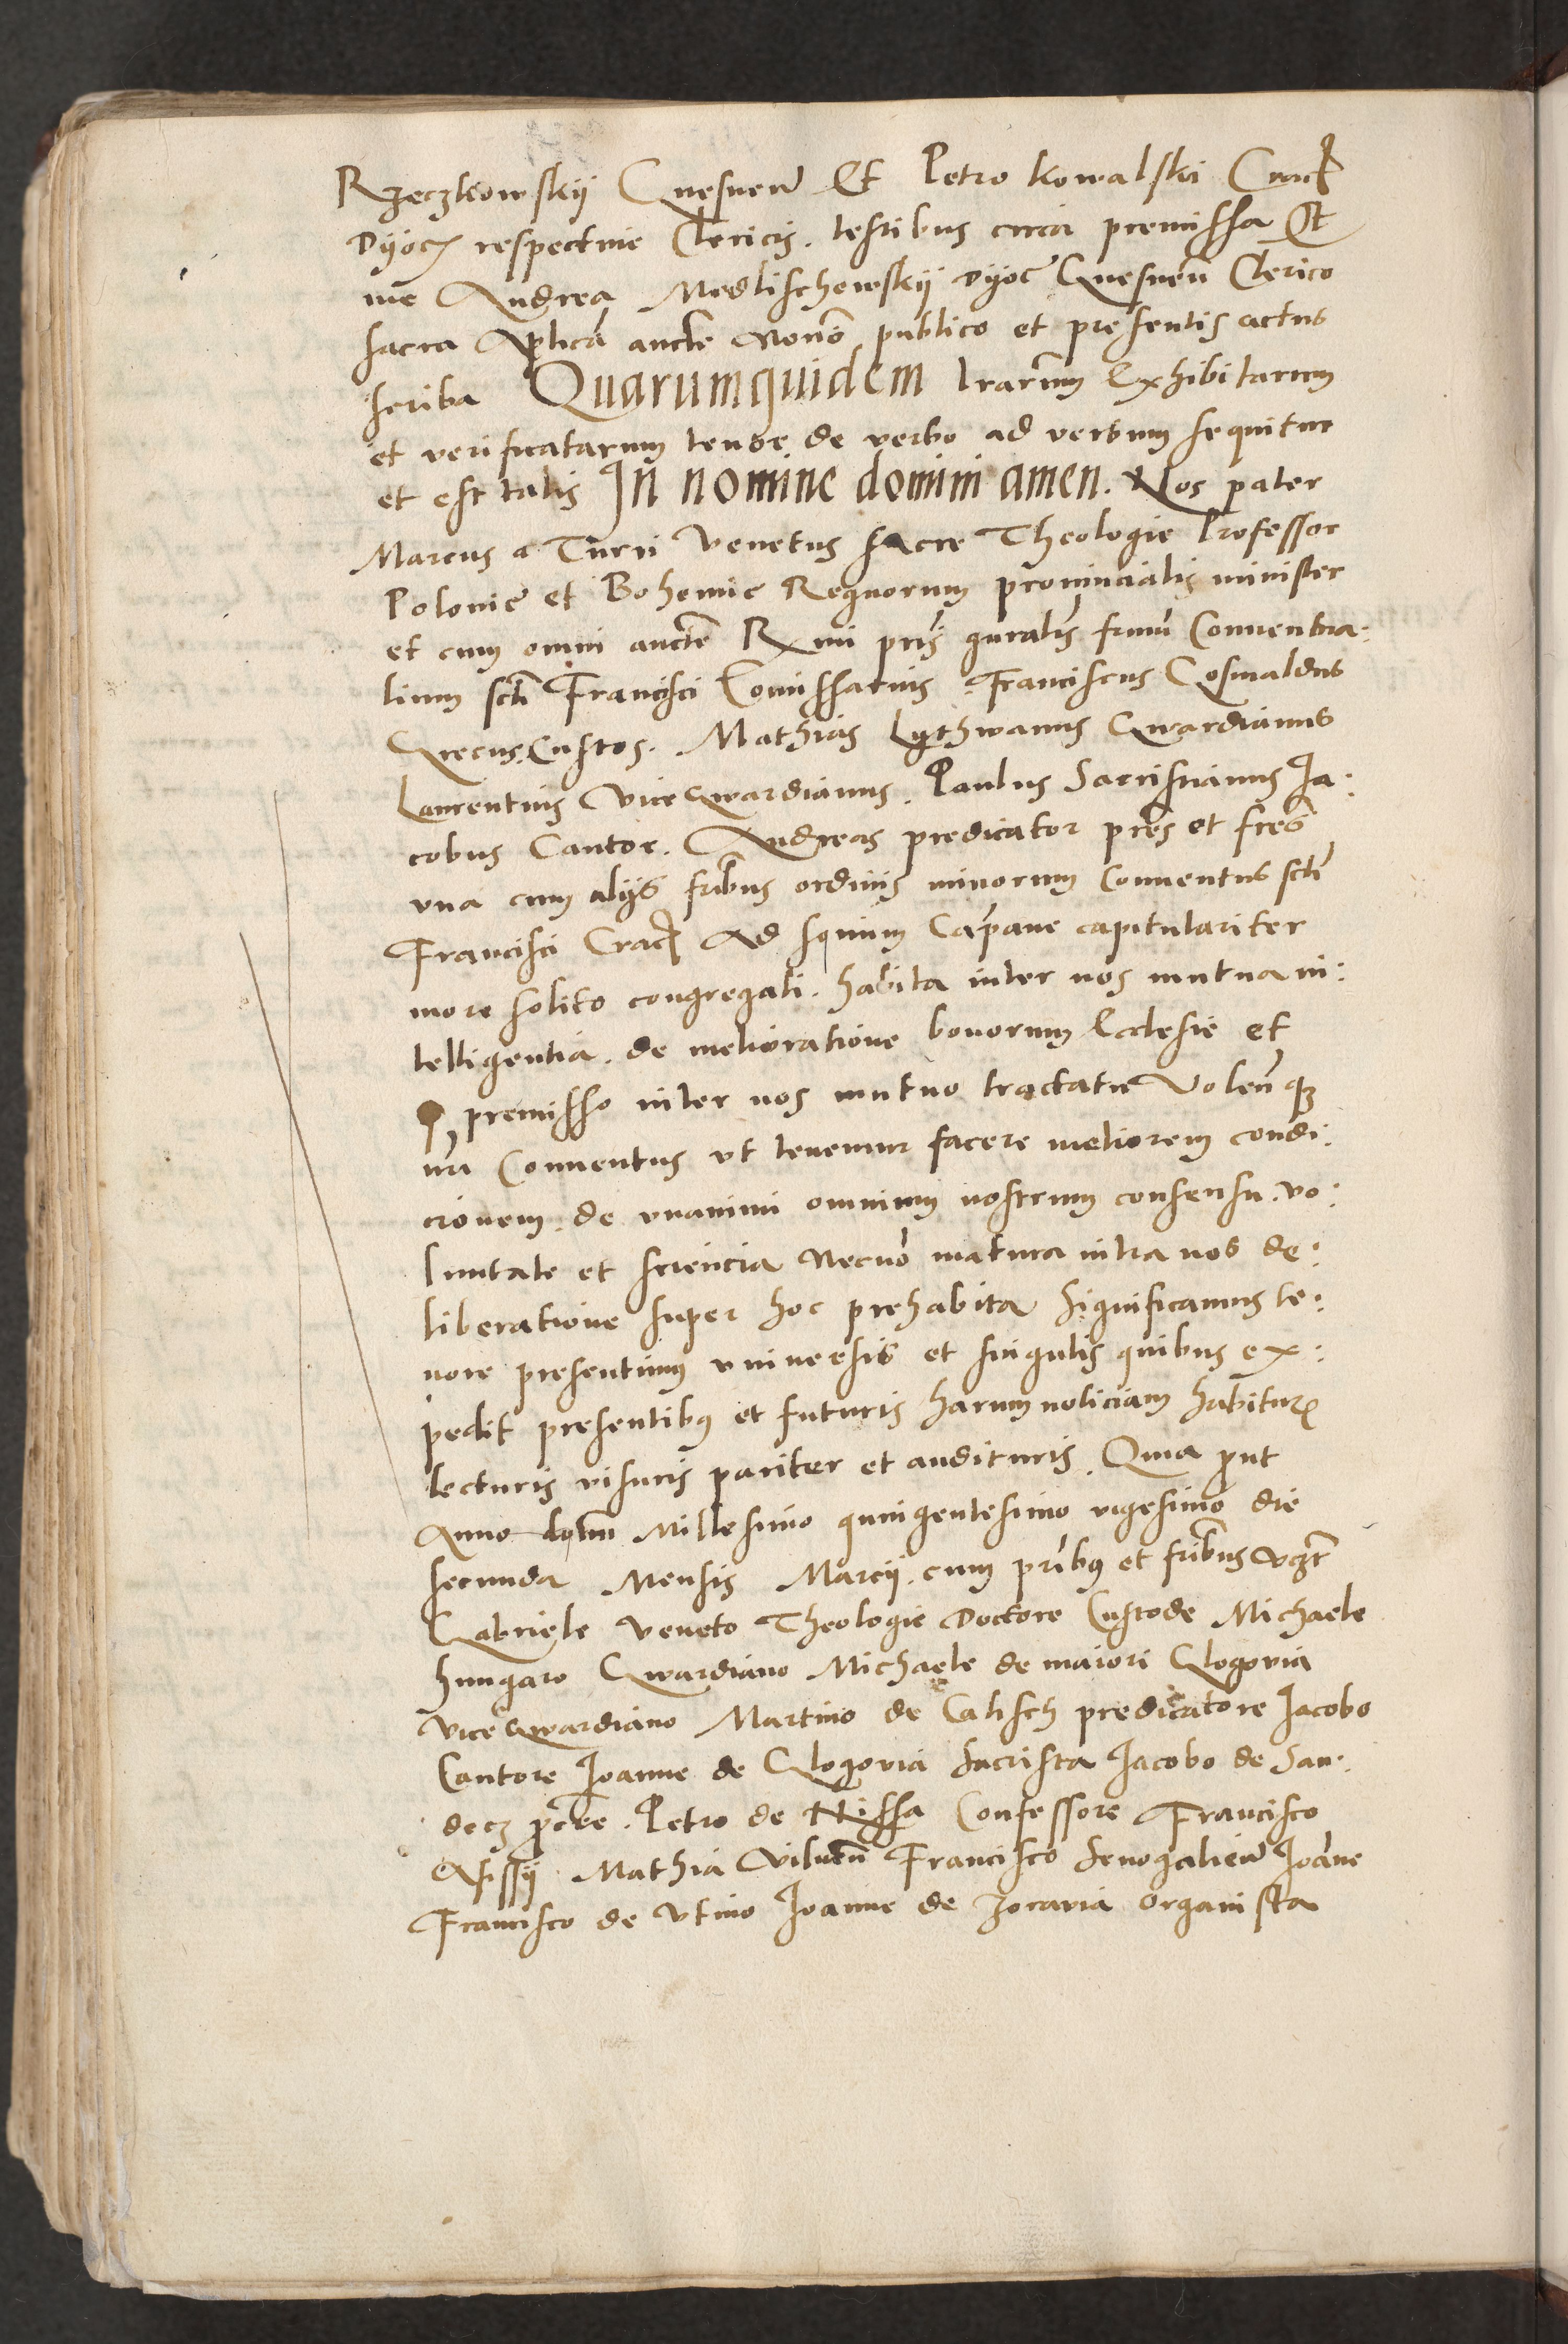 Rzeczkowskij Gnesneñ Et Petro Kowalski Crac̃
Dyoc̃ respectiue Clericis. testibus circa premissa Et
me Andrea Medlischewskij Dyoc̃ Gnesneñ Clerico
sacra Aplica aucte Notario publico et presentis actus
scriba Quarumquidem lrarum Exhibitarum
et verificatarum tenor de verbo ad verbum sequitur
et est talis In nomine domini amen. Nos pater
Marcus a Turri Venetus sacre Theologie Professor
Polonie et Bohemie Regnorum prouincialis minister
et cum omni aucte Rmi pris gnralis frum Conuentua:
lium scti Francisci Comissarius. Franciscus Gosmaldus
Grecus Custos. Mathias Lythwanus Gwardianus
Laurentius Vicegwardianus. Paulus Sacristianus Ia:
cobus Cantor. Andreas predicator pres et fres
vna cum alijs fribus ordinis minorum Conuentus scti
Francisci Crac̃ Ad sonum Campane capitulariter
more solito congregati. habita inter nos mutua in:
telligentia. de melioratione bonorum Ecclesie et
premisso inter nos mutuo tractatu Volentesque
nri Conuentus vt tenemur facere meliorem condi:
cionem. de vnanimi omnium nostrum consensu. vo:
luntate et sciencia Necno matura intra nos de:
liberatione super hoc prehabita Significamus te:
nore presentium vniuersis et singulis quibus ex:
pedit presentibus et futuris harum noticiam habituris
lecturis visuris pariter et audituris. Quia prout
Anno domini Millesimo quingentesimo vigesimo die
secunda Mensis Marcij. cum pribus et fribus
Gabriele Veneto Theologie Doctore Custode Michaele
hungaro Gwardiano Michaele de maiori Glogovia
Vicegwardiano Martino de Calisch predicatore Iacobo
Cantore Ioanne de Glogovia Sacrista Iacobo de San:
decz. Petro de Nissa Confessore Francisco
Asissij Mathia Vilneñ Francisco Senogalieñ Ioanne
Francisco de Vtino Ioanne de Zoravia Organista